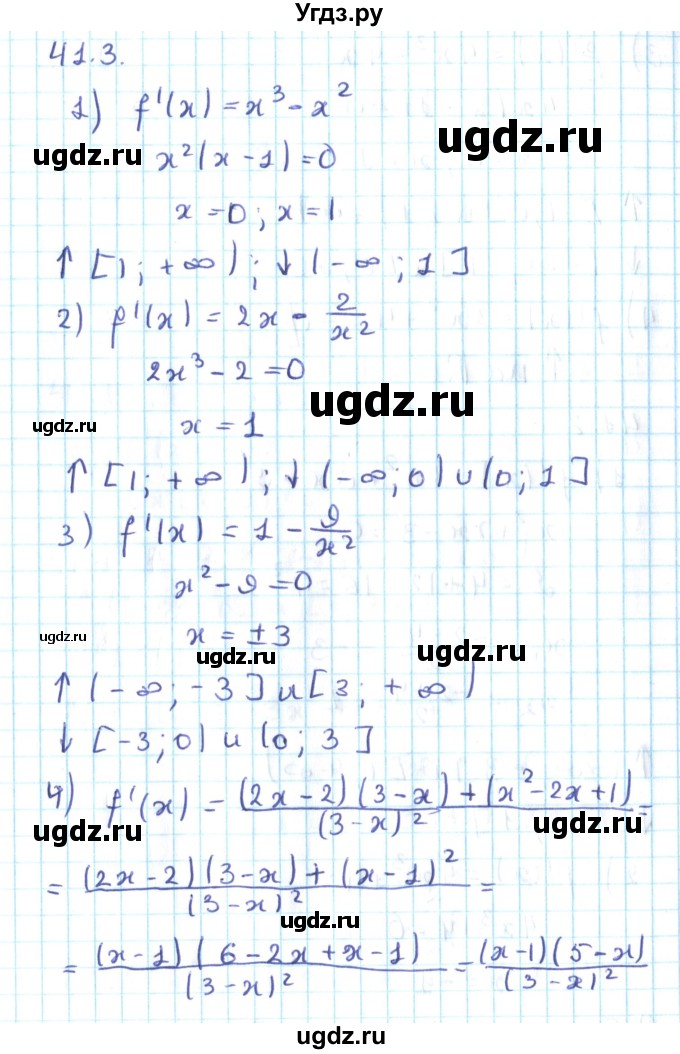 Угдз.ру
41.3.
1) f'(x) = x³ - x²
ugdz.ru
ugdz.ru
x²(x - 1) = 0
x = 0; x = 1
↑ [1; +∞); ↓ (-∞; 1]
2) f'(x) = 2x - 2/x²
2x³ - 2 = 0
ugdz.ru
ugdz.ru
x = 1
↑ [1; +∞); ↓ (-∞; 0) ∪ (0; 1]
3) f'(x) = 1 - 9/x²
x² - 9 = 0
ugdz.ru
x = ±3
ugdz.ru
ugdz.ru
↑ (-∞; -3] и [3; +∞)
↓ [-3; 0) и (0; 3]
4) f'(x) = (2x - 2)(3 - x) + (x² - 2x + 1)/(3 - x)² =
ugdz.ru
ugdz.ru
= (2x - 2)(3 - x) + (x - 1)²/(3 - x)² =
ugdz.ru
= (x - 1)(6 - 2x + x - 1)/(3 - x)² = (x - 1)(5 - x)/(3 - x)²
ugdz.ru